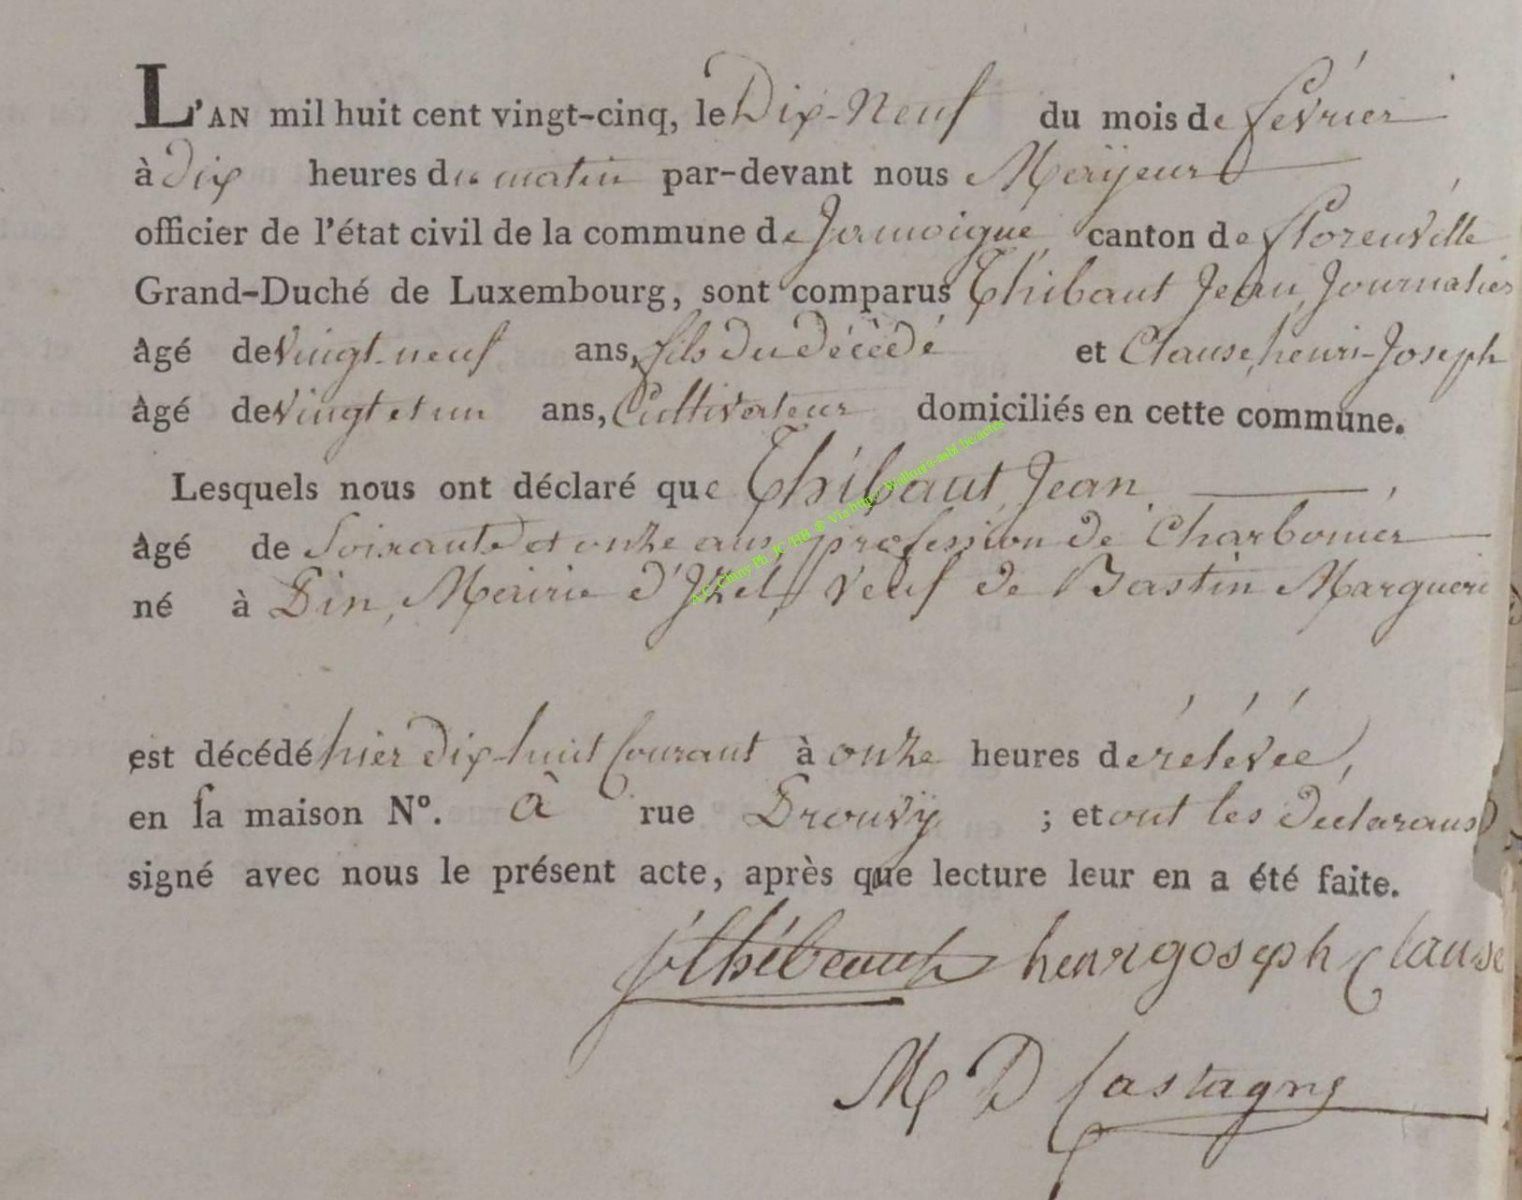 L'AN mil huit cent vingt-cinq, le Dix-Neuf du mois de février
à dix heures du matin par-devant nous Mayeur
officier de l'état civil de la commune de Jamoigne canton de florenville
Grand-Duché de Luxembourg, sont comparus Thibaut Jean, Journalier
àgé de vingt-neuf ans, fils du décédé et Clause, henri-Joseph
àgé de vingt et un ans, Cultivateur domiciliés en cette commune.
Lesquels nous ont déclaré que Thibaut, Jean,
àgé de Soixante et onze ans, profession de Charbonier
né à Pin, Mairie d'Izel, veuf de Bastin Margueri
est décédé hier dix-huit Courant à onze heures de rélévée,
en sa maison N°. à rue Prouvÿ ; et ont les déclarans
signé avec nous le présent acte, après que lecture leur en a été faite.
jthibeaut henri joseph Clause
M D Castagne